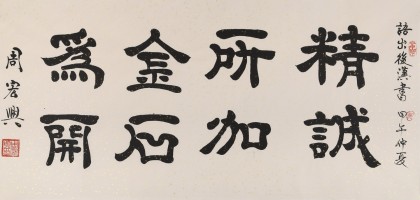 語出後漢書 甲午仲夏
精誠
所加
金石
爲開
周宏興